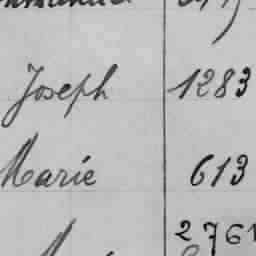 Joseph 1283
Marie 613
2761